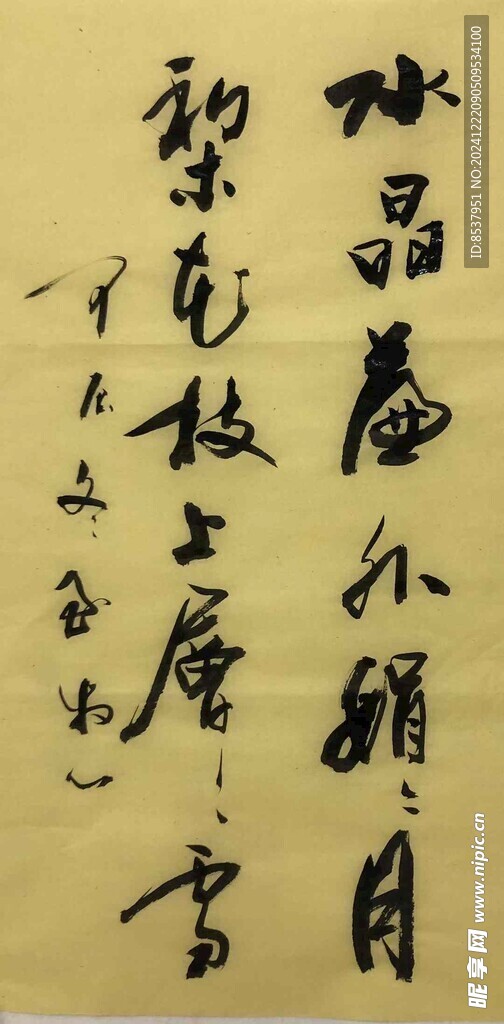 水晶簾外娟々月
梨花枝上層々雪
甲辰冬
ID:8537951 NO:20241222090509534100
昵享网 www.nipic.cn